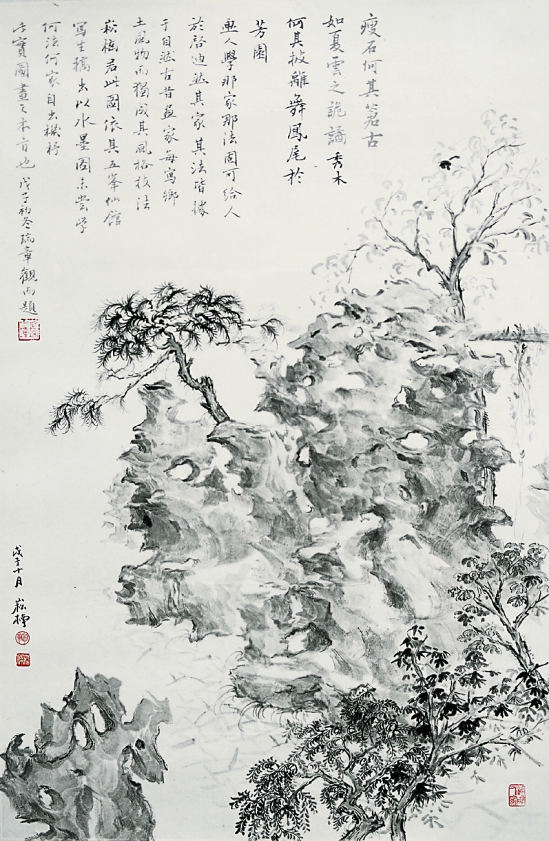 瘦石何其蒼古
如夏雲之詭譎秀木
何其披離舞鳳尾於
芳園
人學那家那法固可給人
於啓迪然其家其法皆緣
于自然古昔畫家每寫鄉
土風物而獨成其風格技法
崧君此圖依其五峯仙館
寫生稿出以水墨固未嘗学
何法何家自出機杼
寶園畫之本旨也戊子初冬瑞章觀雨題
戊子十月崧